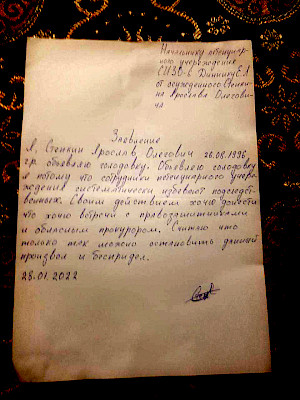 Начальнику пенициар-
ного учереждения
СИЗО-6
от осужденного Стенки-
на Ярослава Олегови-
ча
Заявление
Я, Стенкин Ярослав Олегович 26.08.1996,
гр. объявляю голодовку. Объявляю голодовку
я потому что сотрудники пенициарного учере-
ждения систематически избивают подследст-
венных. Своим действием хочу донести
что хочу встречи с правозащитниками
и областным прокурором. Считаю что
только так можно остановить данный
произвол и беспредел.
28.01.2022